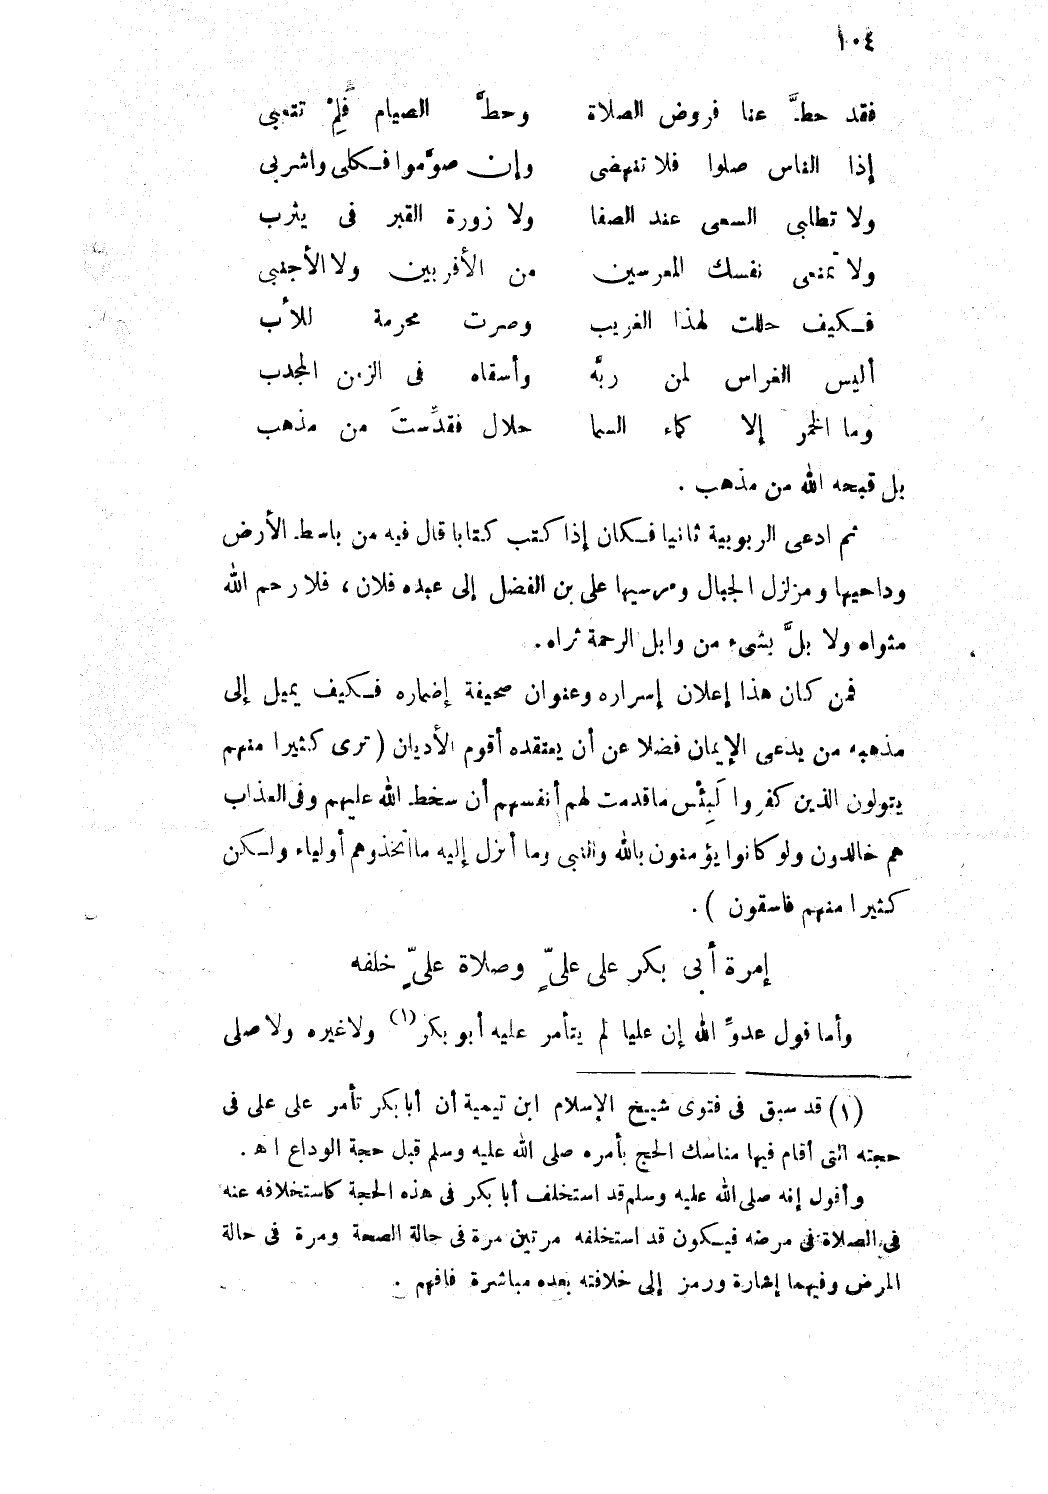 ١٠٤
فقد حطَّ عنا فروض الصلاة وحطَّ الصيام فَلِمْ تتعبى
إذا الناس صلوا فلا تنهضى وإن صوَّموا فكلى واشربى
ولا تطلبى السعى عند الصفا ولا زورة القبر فى يثرب
ولا تمنعى نفسك المعرسين من الأقربين ولا الأجنبى
فكيف حللت لهذا الغريب وصرت محرمة للأب
أليس الغراس لمن ربَّه وأسقاه فى الزمن المجدب
وما الخمر إلا كماء السما حلال فقدِّستَ من مذهب
بل قبحه الله من مذهب .
ثم ادعى الربوبية ثانيا فكان إذا كتب كتابا قال فيه من باسط الأرض
وداحيها ومزلزل الجبال ومرسيها على بن الفضل إلى عبده فلان ، فلا رحم الله
مثواه ولا بلَّ بشىء من وابل الرحمة ثراه .
فمن كان هذا إعلان إسراره وعنوان صحيفة إضماره فكيف يميل إلى
مذهبه من يدعى الإيمان فضلا عن أن يعتقده أقوم الأديان ( ترى كثيرا منهم
يتولون الذين كفروا لَبِئْس ماقدمت لهم أنفسهم أن سخط الله عليهم وفى العذاب
هم خالدون ولو كانوا يؤمنون بالله والنبى وما أنزل إليه مااتخذوهم أولياء ولكن
كثيرا منهم فاسقون ) .
إمرة أبى بكر على علىٍّ وصلاة علىٍّ خلفه
وأما قول عدوِّ الله إن عليا لم يتأمر عليه أبو بكر(١) ولاغيره ولا صلى
(١) قد سبق فى فتوى شيخ الإسلام ابن تيمية أن أبا بكر تأمر على على فى
حجته التى أقام فيها مناسك الحج بأمره صلى الله عليه وسلم قبل حجة الوداع اهـ .
وأقول إنه صلى الله عليه وسلم قد استخلف أبا بكر فى هذه الحجة كاستخلافه عنه
فى الصلاة فى مرضه فيكون قد استخلفه مرتين مرة فى حالة الصحة ومرة فى حالة
المرض وفيهما إشارة ورمز إلى خلافته بعده مباشرة فافهم .